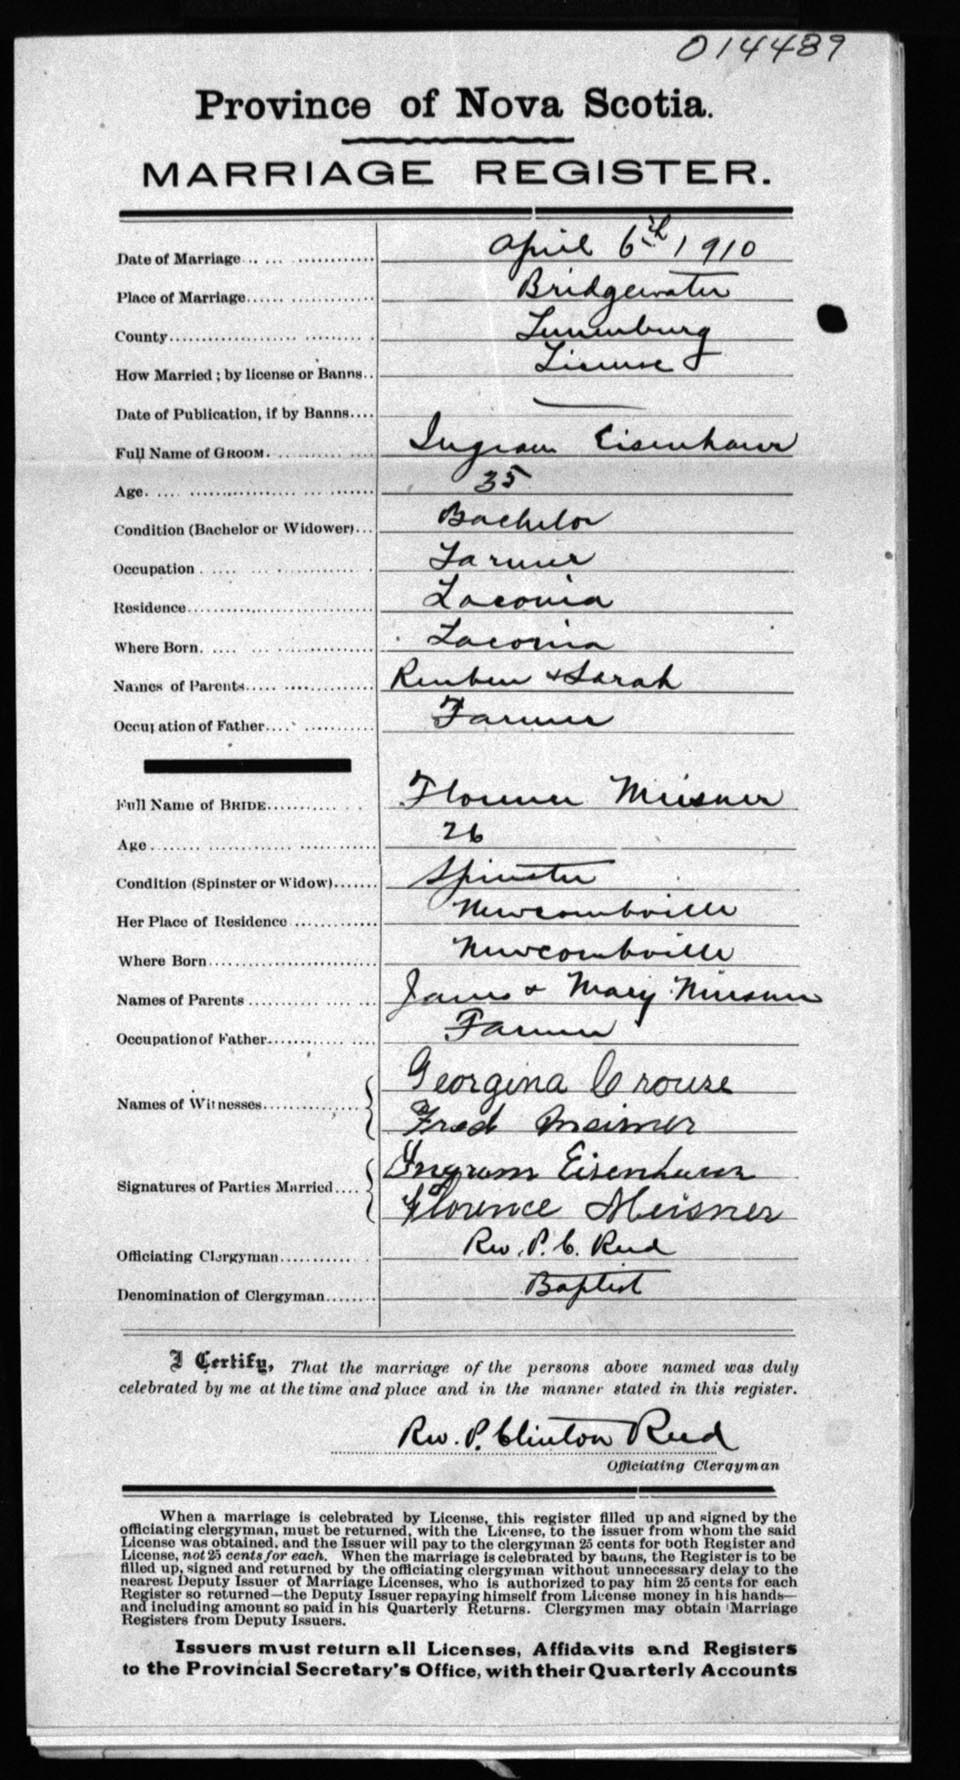 014489
Province of Nova Scotia.
MARRIAGE REGISTER.
Date of Marriage April 6th 1910
Place of Marriage Bridgewater
County Lunenburg
How Married; by license or Banns License
Date of Publication, if by Banns
Full Name of GROOM Ingram Eisenhaur
Age 35
Condition (Bachelor or Widower) Bachelor
Occupation Farmer
Residence Laconia
Where Born Laconia
Names of Parents Reuben & Sarah
Occupation of Father Farmer
Full Name of BRIDE Florence Meisner
Age 26
Condition (Spinster or Widow) Spinster
Her Place of Residence Newcombville
Where Born Newcombville
Names of Parents James & Mary Meisner
Occupation of Father Farmer
Names of Witnesses Georgina Crouse
Fred Meisner
Signatures of Parties Married Ingram Eisenhaur
Florence Meisner
Officiating Clergyman Rev. P. C. Reed
Denomination of Clergyman Baptist
I Certify, That the marriage of the persons above named was duly
celebrated by me at the time and place and in the manner stated in this register.
Rev. P. Clinton Reed
Officiating Clergyman
When a marriage is celebrated by License, this register filled up and signed by the
officiating clergyman, must be returned, with the License, to the issuer from whom the said
License was obtained, and the Issuer will pay to the clergyman 25 cents for both Register and
License, not 25 cents for each. When the marriage is celebrated by banns, the Register is to be
filled up, signed and returned by the officiating clergyman without unnecessary delay to the
nearest Deputy Issuer of Marriage Licenses, who is authorized to pay him 25 cents for each
Register so returned—the Deputy Issuer repaying himself from License money in his hands—
and including amount so paid in his Quarterly Returns. Clergymen may obtain Marriage
Registers from Deputy Issuers.
Issuers must return all Licenses, Affidavits and Registers
to the Provincial Secretary's Office, with their Quarterly Accounts